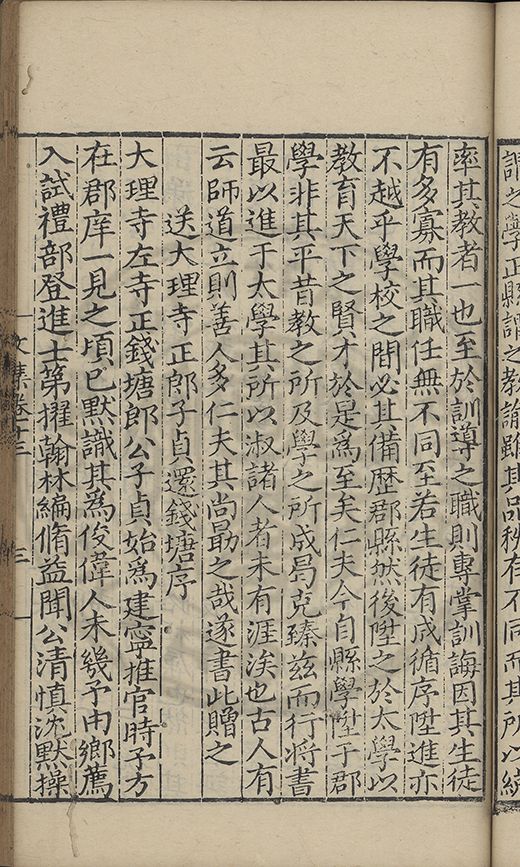 謂之學正縣謂之教諭雖其品秩有不同而其所以統
率其教者一也至於訓導之職則專掌訓誨因其生徒
有多寡而其職任無不同至若生徒有成循序陞進亦
不越乎學校之間必其備歷郡縣然後陞之於太學以
教育天下之賢才於是為至矣仁夫今自縣學陞于郡
學非其平昔教之所及學之所成曷克臻茲而行將書
最以進于太學其所以淑諸人者未有涯涘也古人有
云師道立則善人多仁夫其尚勗之哉遂書此贈之
送大理寺正郎子貞還錢塘序
大理寺左寺正錢塘郎公子貞始為建寧推官時予方
在郡庠一見之頃已默識其為俊偉人未幾予由鄉薦
入試禮部登進士第擢翰林編脩益聞公清慎沈默操
文集卷十三
三